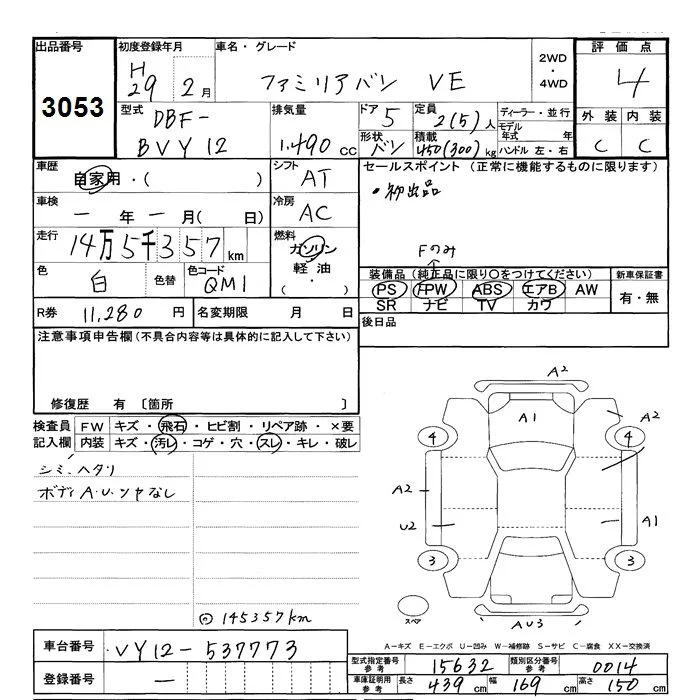 出品番号 初度登録年月 車名・グレード 2WD ・ 4WD 評価点
3053 H29 2月 ファミリアバン VE 4
型式 排気量 ドア 5 定員 2(5)人 ディーラー・並行 外装 内装
DBF-BVY12 1.490 cc 形状 バン 積載 450(300)kg モデル年式 年 ハンドル 左・右 C C
車歴 自家用・( ) シフト AT セールスポイント(正常に機能するものに限ります)
・初出品
車検 ー年ー月( 日) 冷房 AC
走行 14万5千357km 燃料 ガソリン 軽油 ・ Fのみ
色 白 色替 色コード QM1 装備品(純正品に限り○をつけてください) 新車保証書
PS PW ABS エアB AW 有・無
SR ナビ TV カワ
R券 11,280円 名変期限 月 日 後日品
注意事項申告欄(不具合内容等は具体的に記入して下さい)
修復歴 有 〔箇所 〕
検査員 FW キズ・飛石・ヒビ割・リペア跡・×要
記入欄 内装 キズ・汚レ・コゲ・穴・スレ・キレ・破レ
シミ、ヘタリ
ボディA.U.ツヤなし
◎145357km
A2
A1 A2
4 4
A2
U2 A1
3 3
スペア AU3
A-キズ E-エクボ U-凹み W-補修跡 S-サビ C-腐食 XX-交換済
車台番号 VY12-537773
型式指定番号 参考 15632 類別区分番号 参考 0014
登録番号 ー
車庫証明用 参考 長さ 439cm 幅 169cm 高さ 150cm